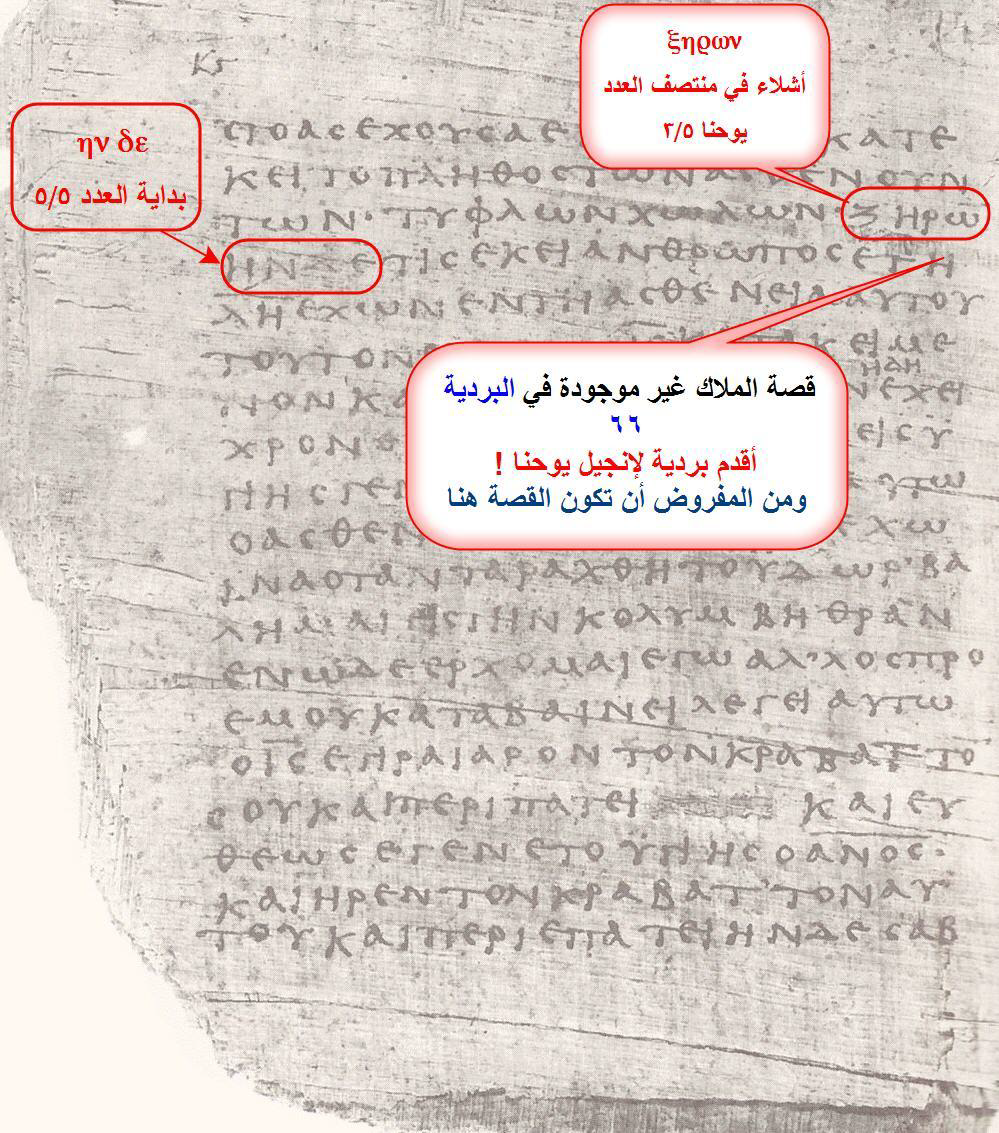 ξηρων
أشلاء في منتصف العدد
يوحنا ٣/٥
ην δε
بداية العدد ٥/٥
قصة الملاك غير موجودة في البردية
٦٦
أقدم بردية لإنجيل يوحنا !
ومن المفروض أن تكون القصة هنا
Κϛ
ϹΤΟΑϹΕΧΟΥϹΑΕ ΚΑΤΕ
ΚΕΙΤΟΠΛΗΘΟϹΤΩΝΑϹΘΕΝΟΥΝ
ΤΩΝ· ΤΥΦΛΩΝΧΩΛΩΝ·ΞΗΡΩ
ΗΝΔΕΤΙϹΕΚΕΙΑΝΘΡΩΠΟϹΕΤΗ
ΛΗΕΧΩΝΕΝΤΗΑϹΘΕΝΕΙΑΑΥΤΟΥ
ΤΟΥΤΟΝ ΚΕΙΜΕ
ΗΔΗ
ΝΟΝΚΑ ΝΕΧΕΙ
ΧΡΟΝΟ ΕΙϹΥ
ΓΙΗϹΓΕ ΥΤΩ
ΟΑϹΘΕΝ ΧΩ
ΙΝΑΟΤΑΝΤΑΡΑΧΘΗΤΟΥΔΩΡ'ΒΑ
ΛΗΜΑΙΕΙϹΤΗΝΚΟΛΥΜΒΗΘΡΑΝ
ΕΝΩΔΕΕΡΧΟΜΑΙΕΓΩΑΛ'ΛΟϹΠΡΟ
ΕΜΟΥΚΑΤΑΒΑΙΝΕΙΛΕΓΕΙΑΥΤΩ
ΟΙϹΕΓΙΡΑΙΑΡΟΝΤΟΝΚΡΑΒΑΤΤΟ
ϹΟΥΚΑΙΠΕΡΙΠΑΤΕΙ ΚΑΙΕΥ
ΘΕΩϹΕΓΕΝΕΤΟΥΓΙΗϹΟΑΝΟϹ·
ΚΑΙΗΡΕΝΤΟΝΚΡΑΒΑΤ'ΤΟΝΑΥ
ΤΟΥΚΑΙΠΕΡΙΕΠΑΤΕΙΗΝΔΕϹΑΒ